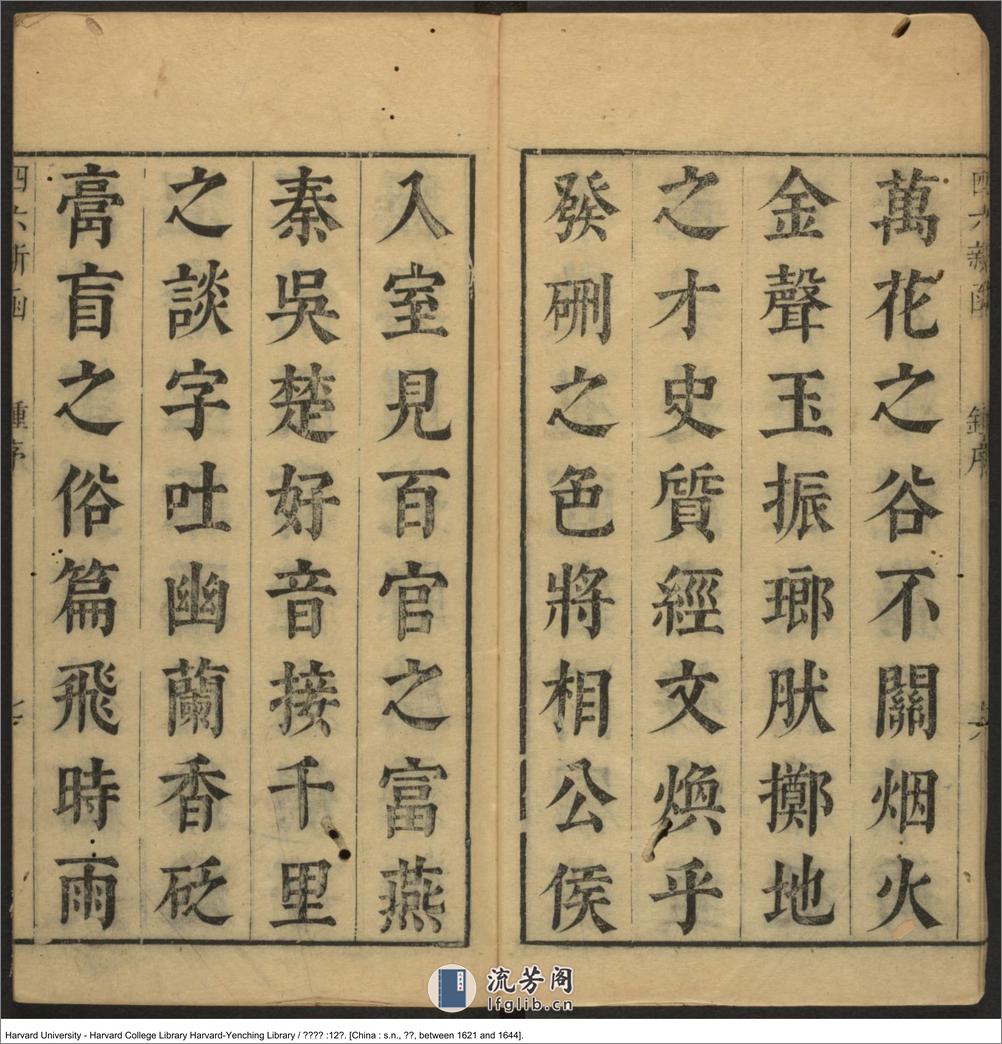 四六新函 鍾序 六
萬花之谷不關烟火
金聲玉振瑯肰擲地
之才史質經文煥乎
發硎之色將相公侯
入室見百官之富燕
秦吳楚好音接千里
之談字吐幽蘭香砭
膏盲之俗篇飛時雨
四六新函 鍾序 七
流芳阁
lfglib.cn
Harvard University - Harvard College Library Harvard-Yenching Library / ???? :12?. [China : s.n., ??, between 1621 and 1644].